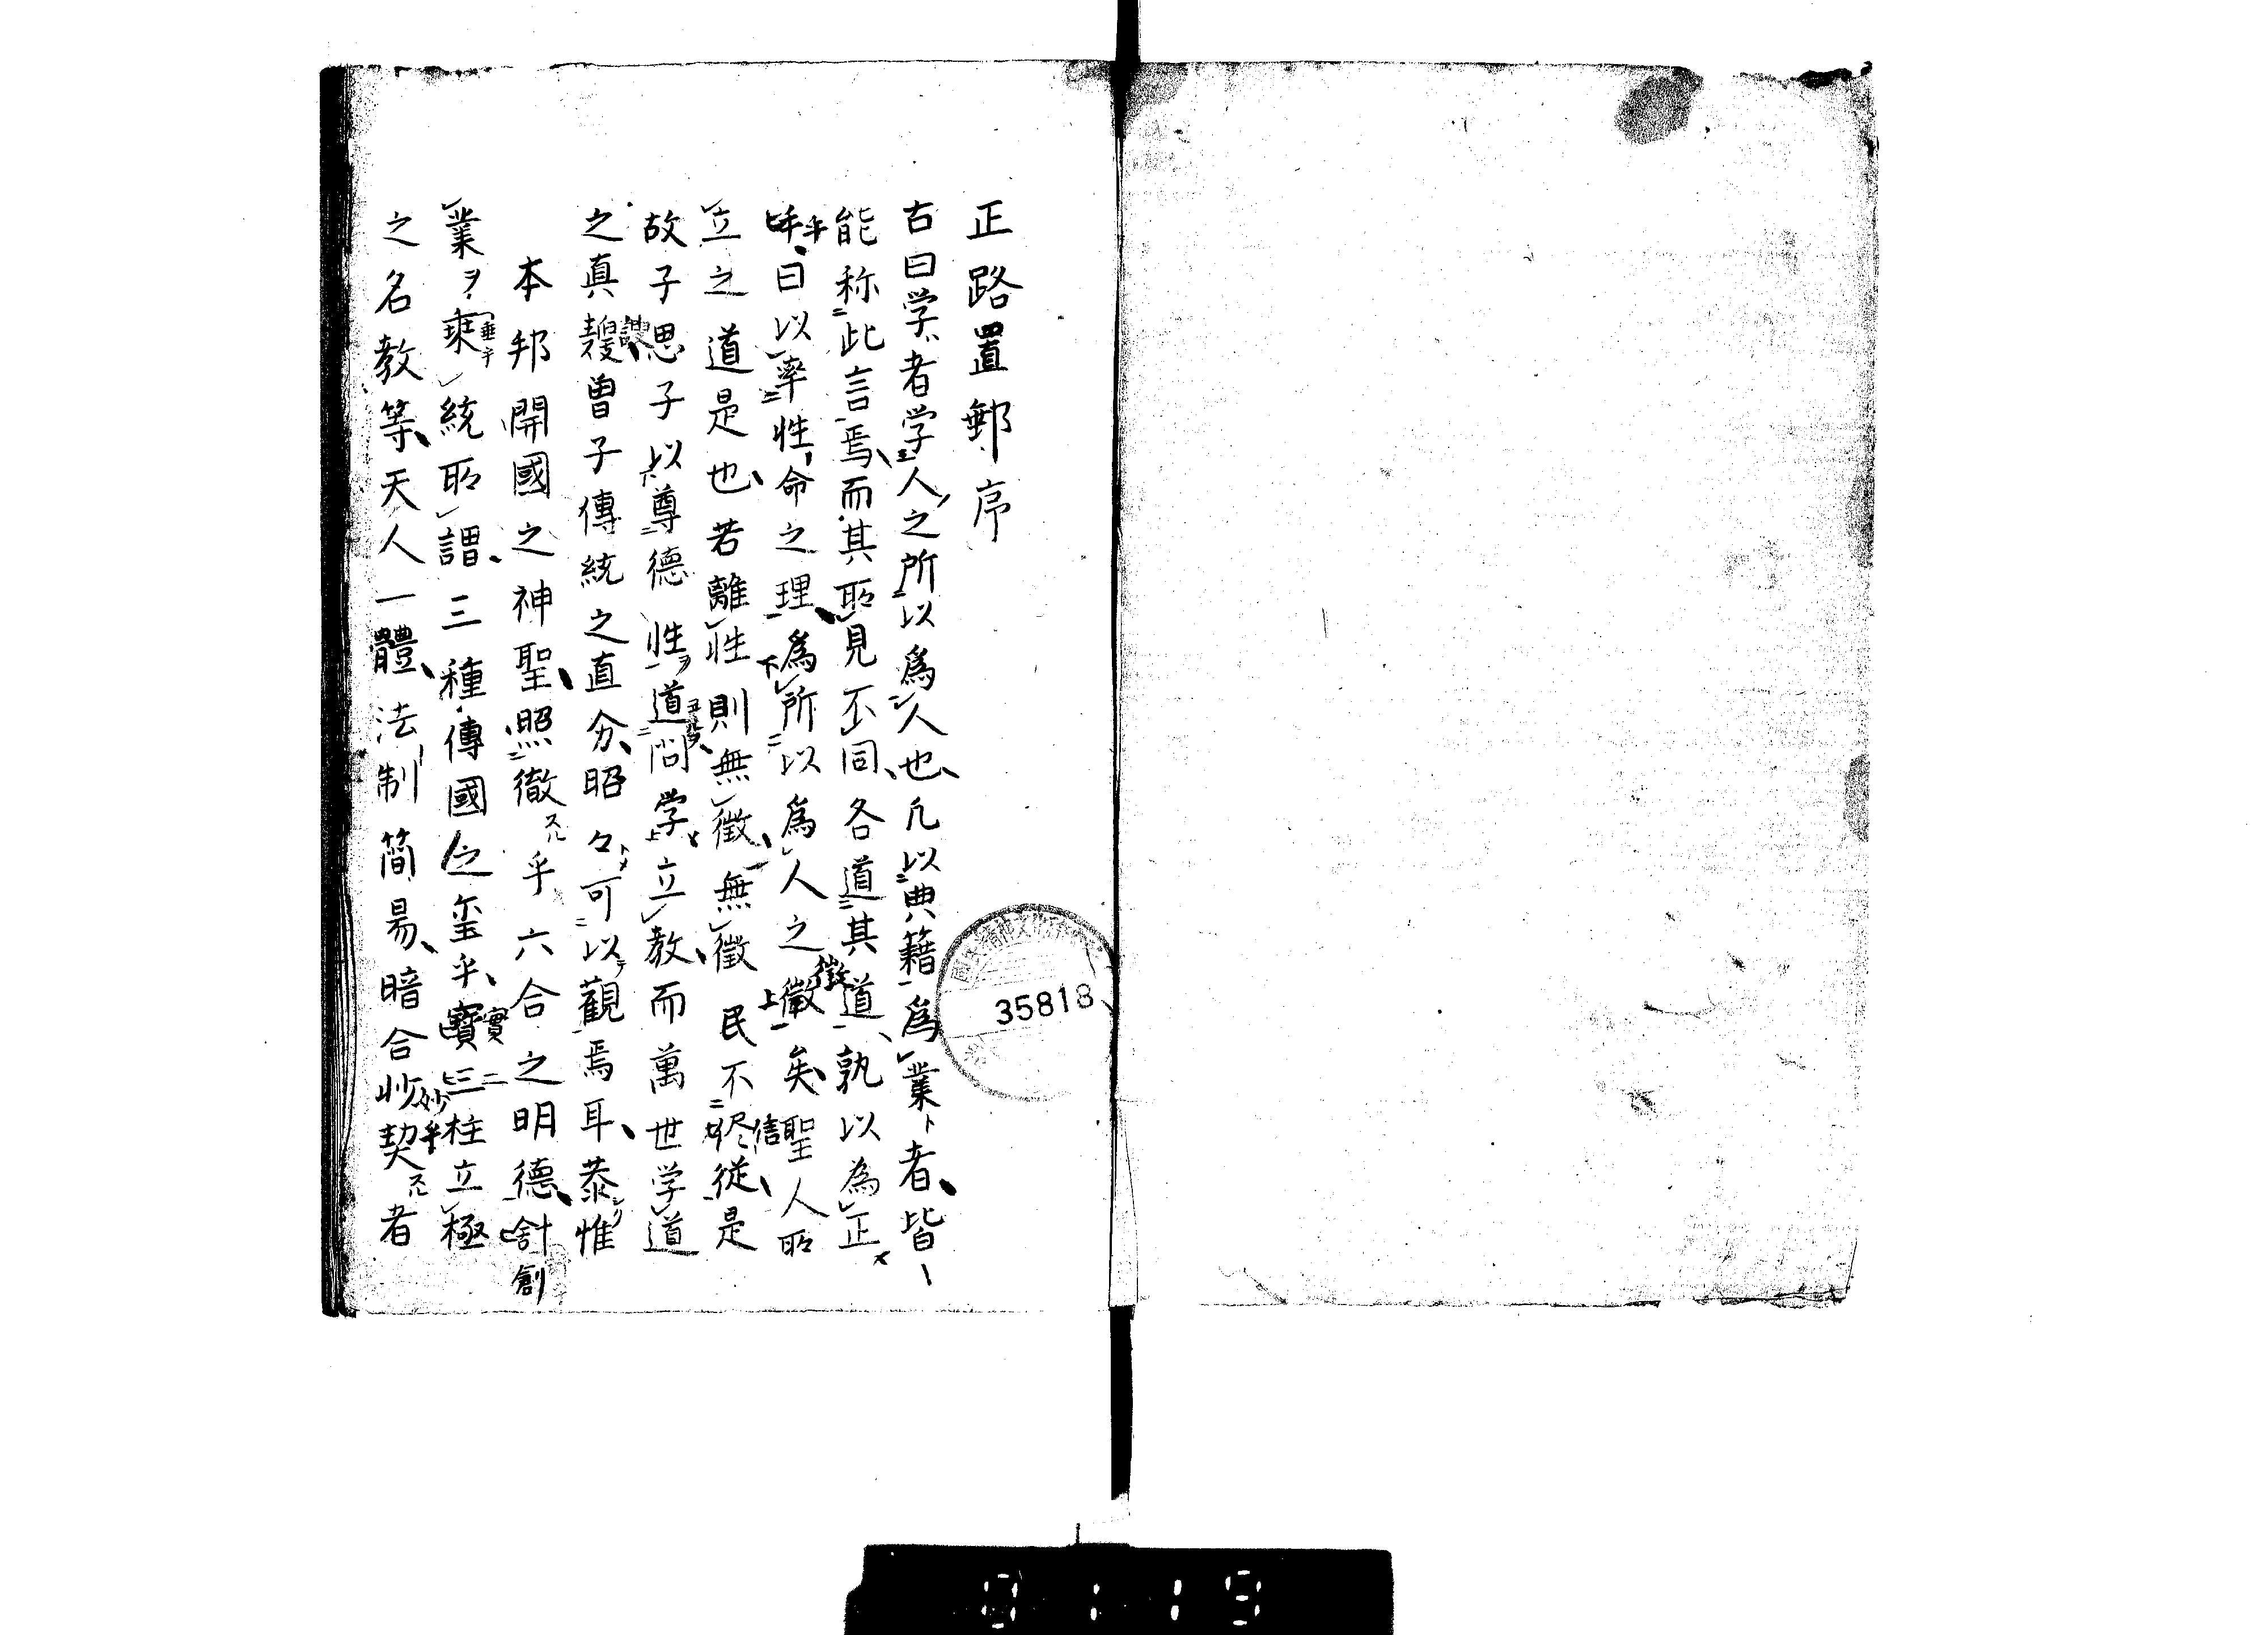 正路置郵序
古曰学者学人之所以為人也凡以典籍為業者皆
能称此言焉而其所見不同各道其道孰以為正
乎曰以率性命之理為所以為人之徴矣聖人所
立之道是也若離性則無徴無徴民不信従是
故子思子以尊徳性道問学立教而萬世学道
之真諦曽子傳統之直分昭々可以觀焉耳恭惟
本邦開國之神聖照徹乎六合之明徳創
業ヲ垂統所謂三種傳國之玺乎寳三柱立極
之名教等天人一體法制簡易暗合妙契者
35818